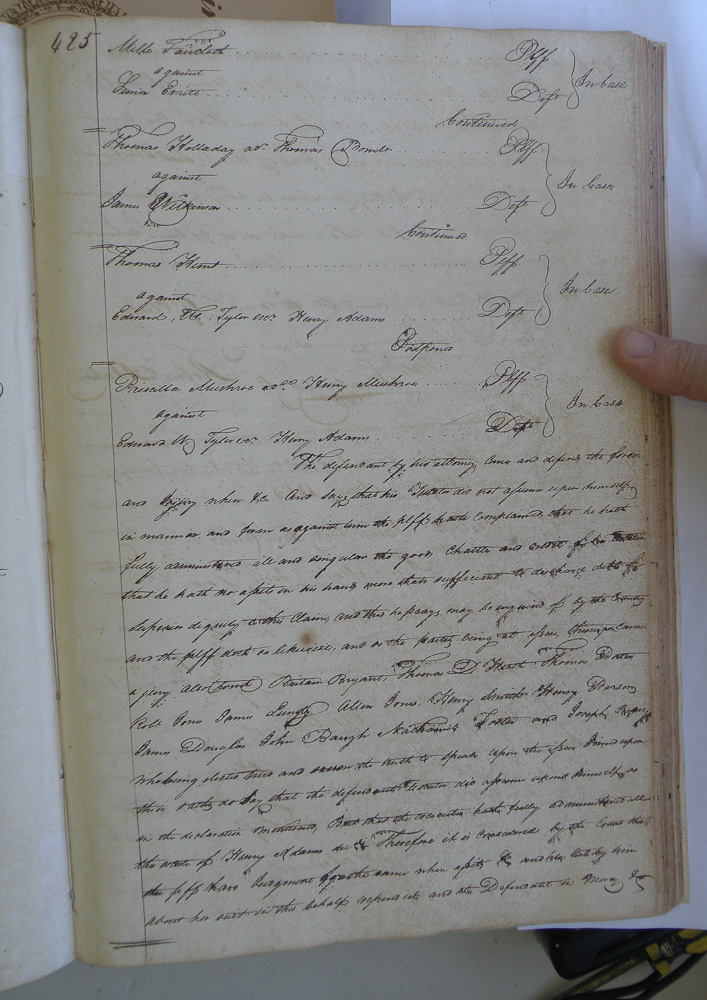 425
Mills Plff
against In Case
Deft
Continued
Thomas Holladay adr. Thomas Plff
against In Case
James Wilkinson Deft
Continued
Thomas Hunt Plff
against In Case
Edward W. Tyler exr. Henry Adams Deft
Postponed
Priscilla Mushroe adx. Henry Mushroe Plff
against In Case
Edward W. Tyler exr. Henry Adams Deft
The defendant by his attorney comes and defends the force
and injury when &c. And says that his Testator did not assume upon himself
in manner and form as against him the plff hath complained that he hath
fully administered all and singular the goods Chattles and
that he hath no assets in his hands more than sufficient to discharge debts of
dignity to this Claim, and this he prays may be enquired of by the Country
and the plff doth so likewise, and the parties being at issue, thereupon came
a jury also Bryant, Thomas D. Thomas
Robt. Jones James Allen Jones, Henry Smith Henry
James Douglas John Baugh Nathaniel and Joseph
who being elected tried and sworn the truth to speak upon the issue Joined upon
their oaths do say that the defendants Testator did assume upon himself as
in the declaration mentioned, But that the executor hath fully administered all
the estate of Henry Adams decd. Therefore it is considered by the Court that
the plff have Judgment for the same when assets &c. and her costs by him
about her suit in this behalf expended and the Defendant in Mercy &c